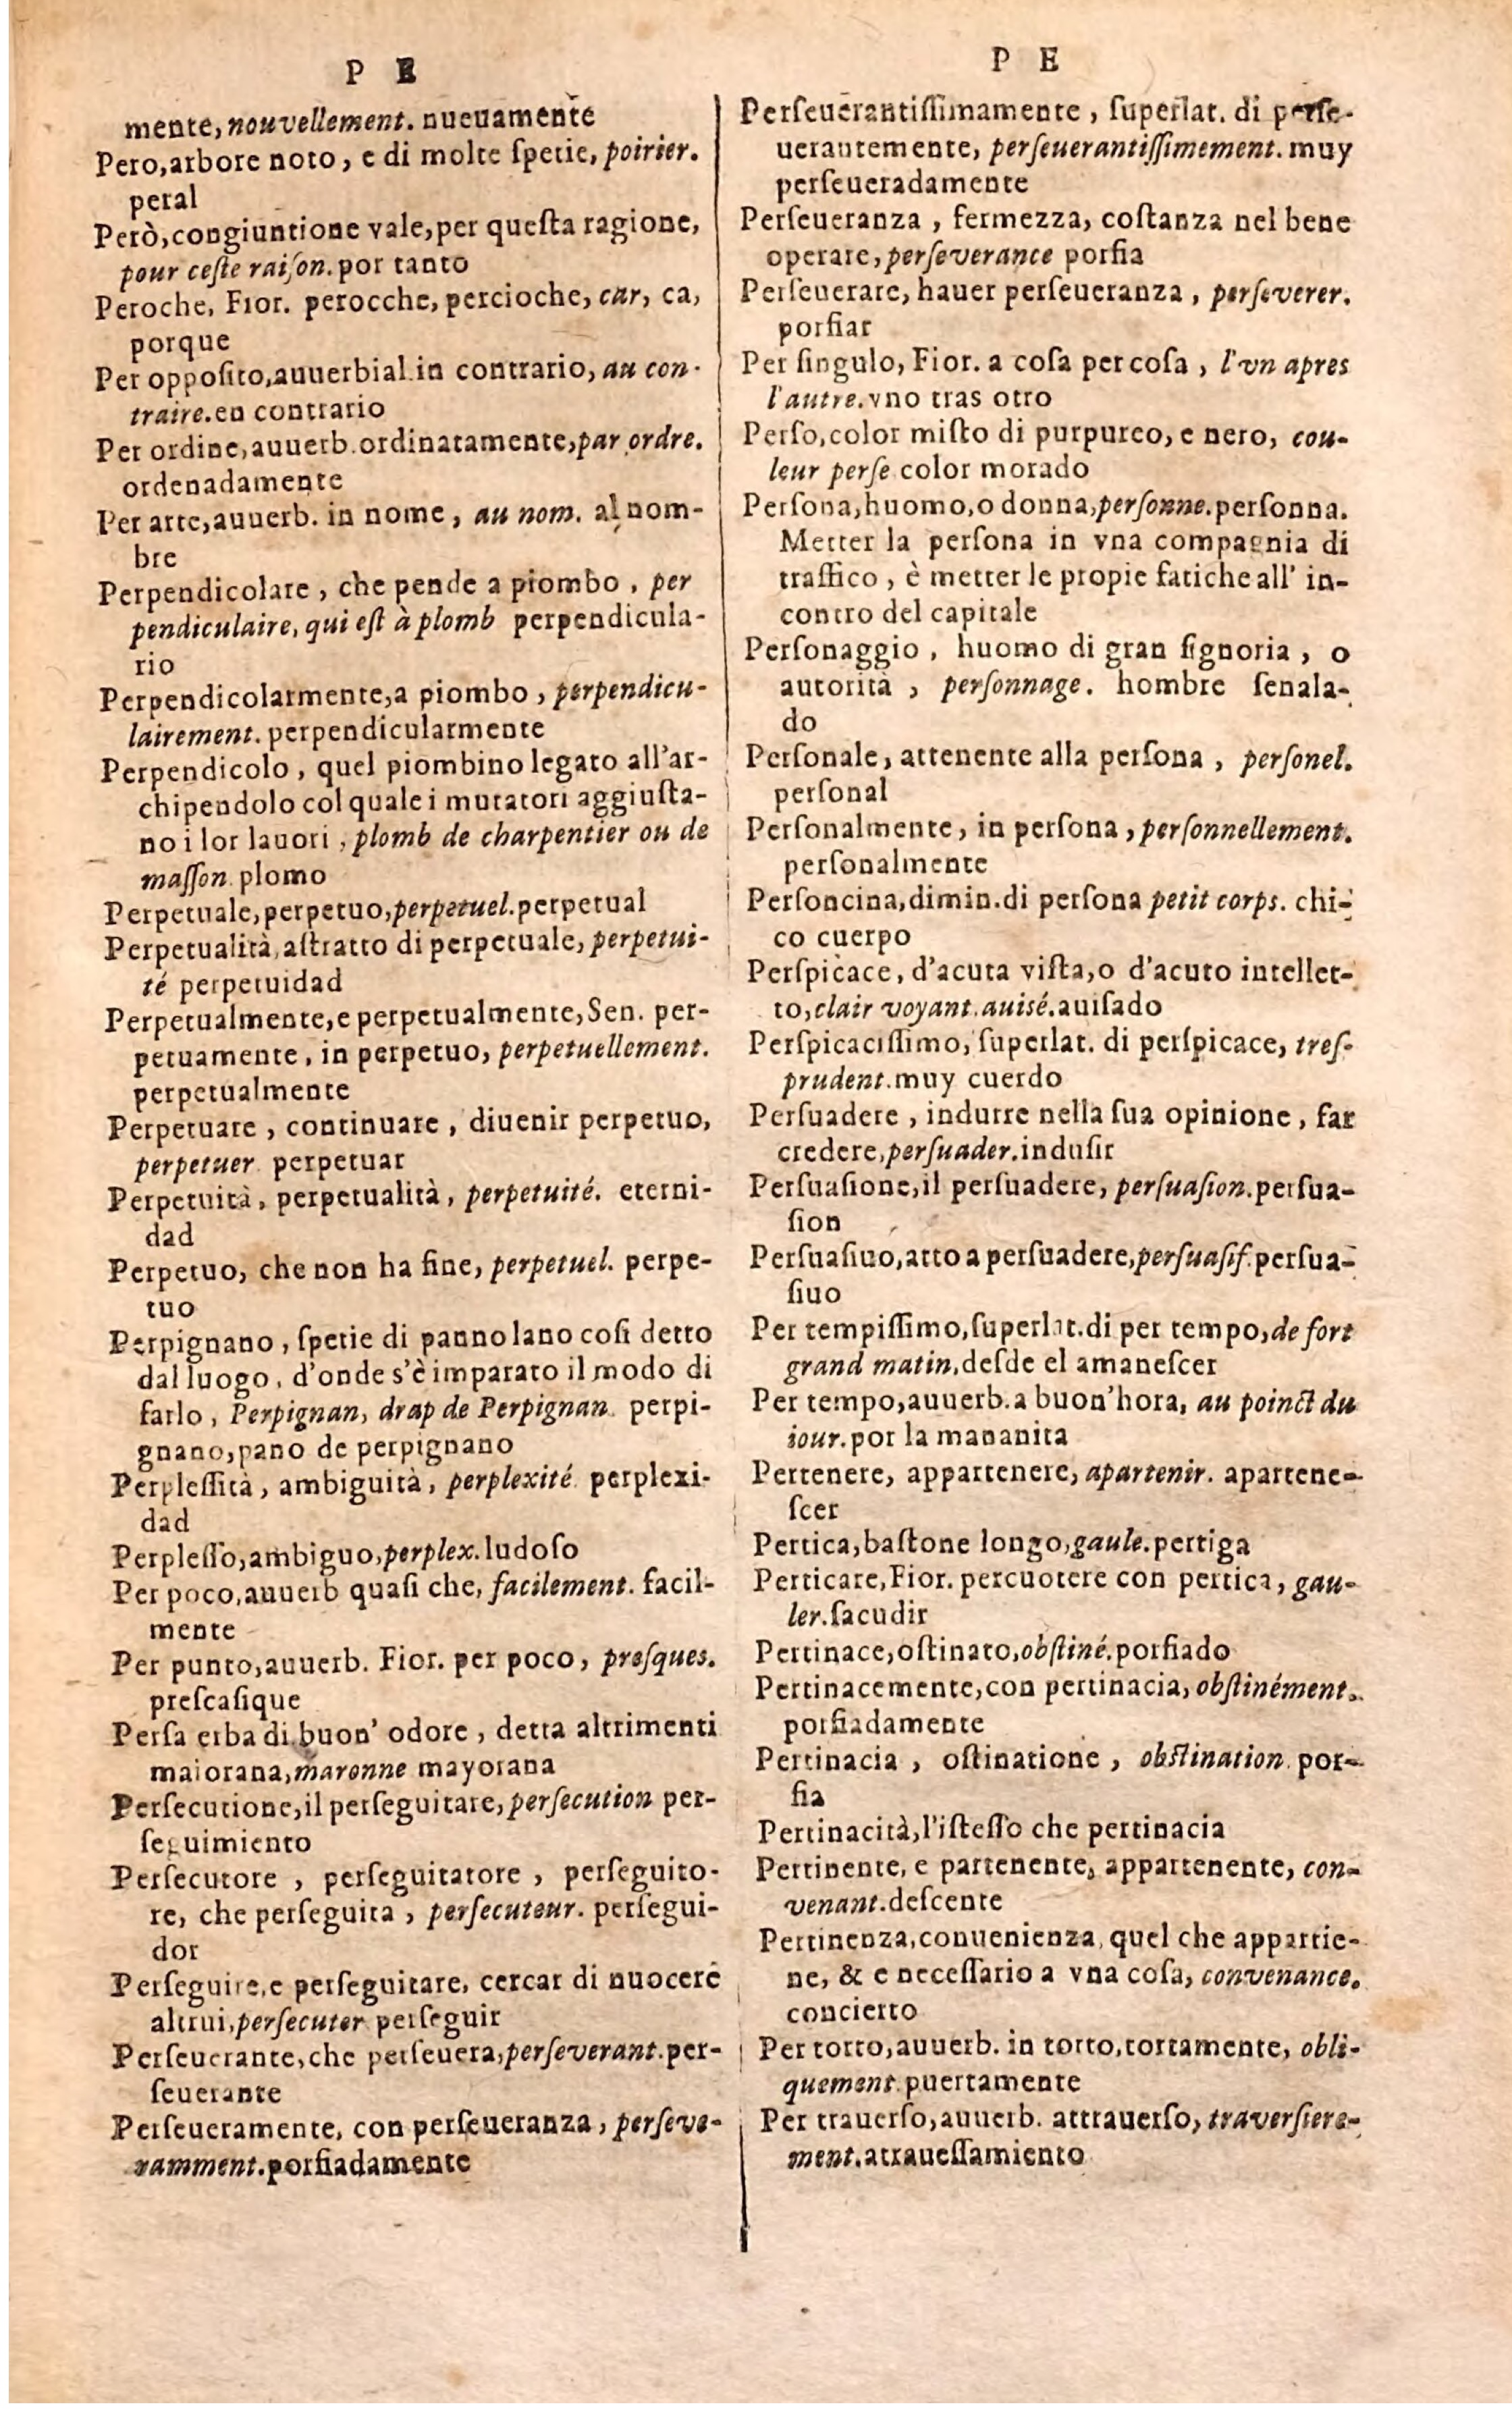 P E
mente, nouvellement. nueuamente
Pero, arbore noto, e di molte ſpetie, poirier.
peral
Però, congiuntione vale, per queſta ragione,
pour ceſte raiſon. por tanto
Peroche, Fior. perocche, percioche, car, ca,
porque
Per oppoſito, auuerbial. in contrario, au con-
traire. en contrario
Per ordine, auuerb. ordinatamente, par ordre.
ordenadamente
Per arte, auuerb. in nome, au nom. al nom-
bre
Perpendicolare, che pende a piombo, per
pendiculaire, qui eſt à plomb perpendicula-
rio
Perpendicolarmente, a piombo, perpendicu-
lairement. perpendicularmente
Perpendicolo, quel piombino legato all'ar-
chipendolo col quale i muratori aggiuſta-
no i lor lauori, plomb de charpentier ou de
maſſon. plomo
Perpetuale, perpetuo, perpetuel. perpetual
Perpetualità, aſtratto di perpetuale, perpetui-
té perpetuidad
Perpetualmente, e perpetualmente, Sen. per-
petuamente, in perpetuo, perpetuellement.
perpetualmente
Perpetuare, continuare, diuenir perpetuo,
perpetuer. perpetuar
Perpetuità, perpetualità, perpetuité. eterni-
dad
Perpetuo, che non ha fine, perpetuel. perpe-
tuo
Perpignano, ſpetie di panno lano coſi detto
dal luogo, d'onde s'è imparato il modo di
farlo, Perpignan, drap de Perpignan. perpi-
gnano, pano de perpignano
Perpleſſità, ambiguità, perplexité. perplexi-
dad
Perpleſſo, ambiguo, perplex. ludoſo
Per poco, auuerb quaſi che, facilement. facil-
mente
Per punto, auuerb. Fior. per poco, preſques.
preſcaſique
Perſa erba di buon' odore, detta altrimenti
maiorana, maronne mayorana
Perſecutione, il perſeguitare, perſecution per-
ſeguimiento
Perſecutore, perſeguitatore, perſeguito-
re, che perſeguita, perſecuteur. perſegui-
dor
Perſeguire, e perſeguitare, cercar di nuocere
altrui, perſecuter perſeguir
Perſeuerante, che perſeuera, perſeverant. per-
ſeuerante
Perſeueramente, con perſeueranza, perſeve-
ramment. porfiadamente
P E
Perſeuerantiſſimamente, ſuperlat. di perſe-
uerantemente, perſeuerantiſſimement. muy
perſeueradamente
Perſeueranza, fermezza, coſtanza nel bene
operare, perſeverance porfia
Perſeuerare, hauer perſeueranza, perſeverer.
porfiar
Per ſingulo, Fior. a coſa per coſa, l'vn apres
l'autre. vno tras otro
Perſo, color miſto di purpureo, e nero, cou-
leur perſe. color morado
Perſona, huomo, o donna, perſonne. perſonna.
Metter la perſona in vna compagnia di
traffico, è metter le propie fatiche all' in-
contro del capitale
Perſonaggio, huomo di gran ſignoria, o
autorità, perſonnage. hombre ſenala-
do
Perſonale, attenente alla perſona, perſonel.
perſonal
Perſonalmente, in perſona, perſonnellement.
perſonalmente
Perſoncina, dimin. di perſona petit corps. chi-
co cuerpo
Perſpicace, d'acuta viſta, o d'acuto intellet-
to, clair voyant. auisé. auiſado
Perſpicaciſſimo, ſuperlat. di perſpicace, treſ-
prudent. muy cuerdo
Perſuadere, indurre nella ſua opinione, far
credere, perſuader. induſir
Perſuaſione, il perſuadere, perſuaſion. perſua-
ſion
Perſuaſiuo, atto a perſuadere, perſuaſif. perſua-
ſiuo
Per tempiſſimo, ſuperlat. di per tempo, de fort
grand matin. deſde el amaneſcer
Per tempo, auuerb. a buon'hora, au poinct du
iour. por la mananita
Pertenere, appartenere, apartenir. apartene-
ſcer
Pertica, baſtone longo, gaule. pertiga
Perticare, Fior. percuotere con pertica, gau-
ler. ſacudir
Pertinace, oſtinato, obſtiné. porfiado
Pertinacemente, con pertinacia, obſtinément.
porfiadamente
Pertinacia, oſtinatione, obſtination. por-
fia
Pertinacità, l'iſteſſo che pertinacia
Pertinente, e partenente, appartenente, con-
venant. deſcente
Pertinenza, conuenienza, quel che appartie-
ne, & e neceſſario a vna coſa, convenance.
concierto
Per torto, auuerb. in torto, tortamente, obli-
quement. puertamente
Per trauerſo, auuerb. attrauerſo, traverſiere-
ment. atraueſſamiento